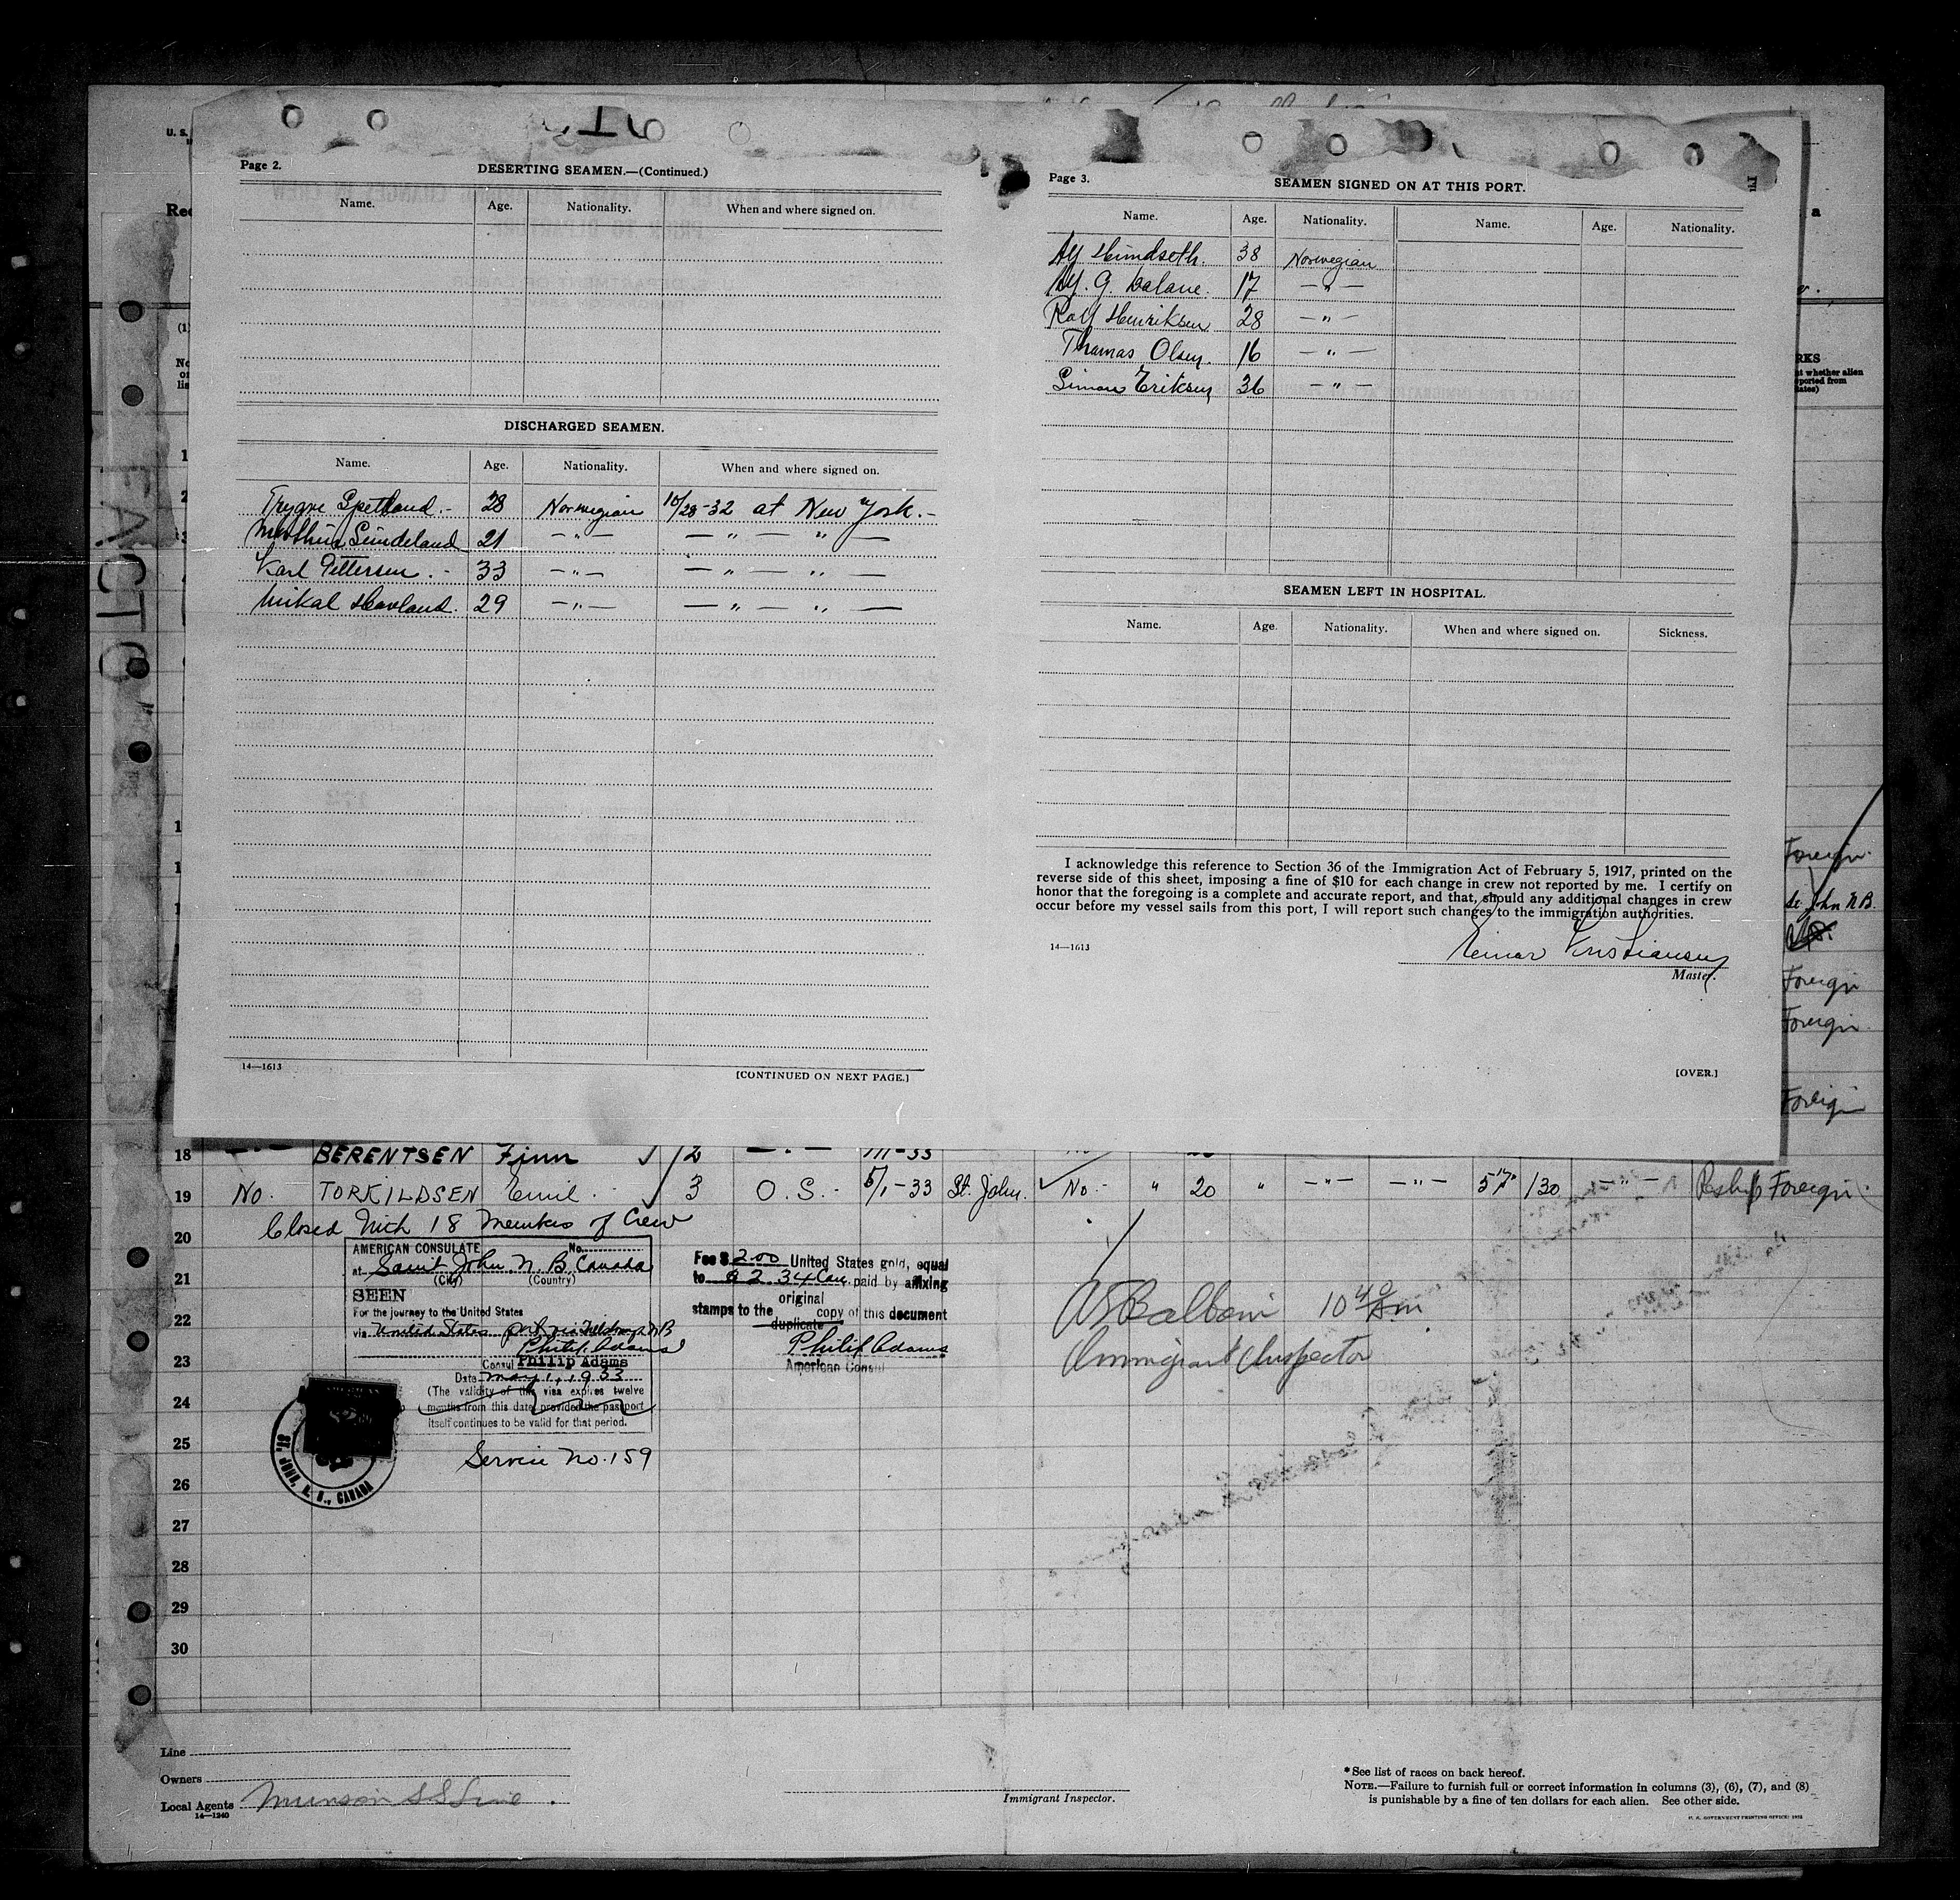 Page 2.
DESERTING SEAMEN.—(Continued.)
Name. Age. Nationality. When and where signed on.
DISCHARGED SEAMEN.
Name. Age. Nationality. When and where signed on.
Trygve Spetland.- 28 Norwegian 10/28-32 at New York.-
Mathias Sundeland 21 — " — — " — " —
Karl Pettersen.- 33 — " — — " — " —
Mikal Havland. 29 — " — — " — " —
14—1613
[CONTINUED ON NEXT PAGE.]
Page 3.
SEAMEN SIGNED ON AT THIS PORT.
Name. Age. Nationality. Name. Age. Nationality.
Alf 38 Norwegian
Alf. G. Dalane. 17 — " —
Rolf Henriksen 28 — " —
Thomas Olsen. 16 — " —
Simon Eriksen 36 — " —
SEAMEN LEFT IN HOSPITAL.
Name. Age. Nationality. When and where signed on. Sickness.
I acknowledge this reference to Section 36 of the Immigration Act of February 5, 1917, printed on the
reverse side of this sheet, imposing a fine of $10 for each change in crew not reported by me. I certify on
honor that the foregoing is a complete and accurate report, and that, should any additional changes in crew
occur before my vessel sails from this port, I will report such changes to the immigration authorities.
14—1613
Reinar Kristiansen
Master.
[OVER.]
U. S.
FACTO
RKS
Foreign
St John N.B.
Foreign
Foreign
Foreign
18 BERENTSEN Finn 2 — " —
19 No. TORKILDSEN Emil 3 O.S.- 5/1-33 St. John. No.- " 20 " — " — — " — 5 7 130 — " — Reship Foreign
Closed With 18 Members of Crew
20
21
22
23
24
25
26
27
28
29
30
AMERICAN CONSULATE No.
at Saint John, N.B. Canada
(City) (Country)
SEEN
For the journey to the United States
via United States port via Hillsborough NB
Philip Adams
Consul Philip Adams
Date May 1, 1933
(The validity of this visa expires twelve
months from this date provided the passport
itself continues to be valid for that period.
Service No. 159
ST. JOHN, N. B., CANADA
Fee $ 2.00 United States gold, equal
to $ 2.34 Can. paid by affixing
original
stamps to the copy of this document
duplicate
Philip Adams
American Consul
10 40 Am
Immigrant Inspector
Line
Owners
Local Agents Munson S S Line
14—1240
Immigrant Inspector.
*See list of races on back hereof.
NOTE.—Failure to furnish full or correct information in columns (3), (6), (7), and (8)
is punishable by a fine of ten dollars for each alien. See other side.
U. S. GOVERNMENT PRINTING OFFICE: 1932